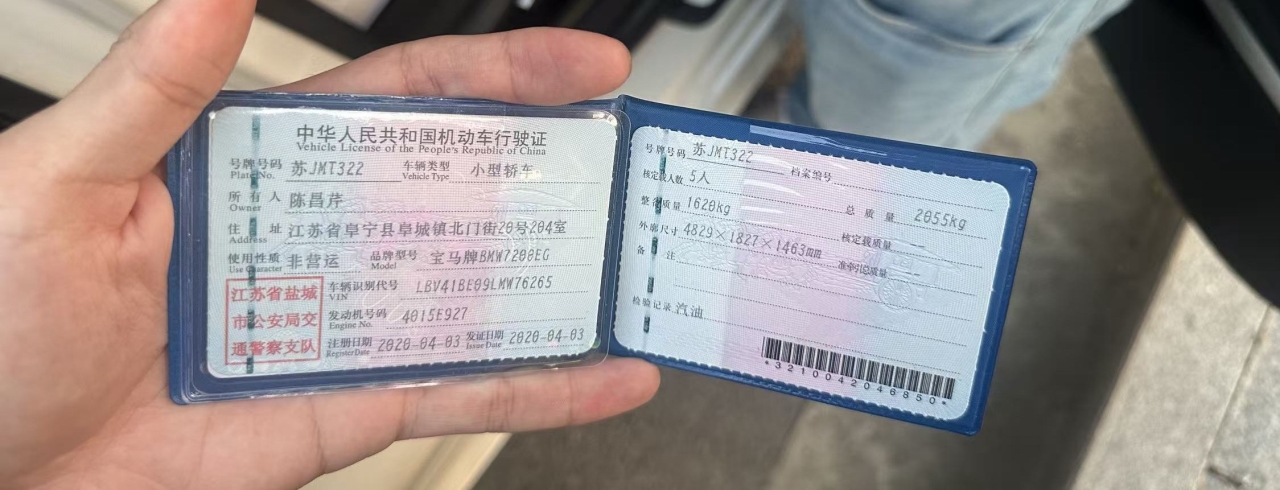 中华人民共和国机动车行驶证
Vehicle License of the People's Republic of China
号牌号码 苏JMT322 车辆类型 小型轿车
Plate No. Vehicle Type
所有人 陈昌芹
Owner
住址 江苏省阜宁县阜城镇北门街20号204室
Address
使用性质 非营运 品牌型号 宝马牌BMW7200EG
Use Character Model
江苏省盐城
市公安局交
通警察支队
车辆识别代号 LBV41BE09LMW76265
VIN
发动机号码 4015E927
Engine No.
注册日期 2020-04-03 发证日期 2020-04-03
Register Date Issue Date
号牌号码 苏JMT322 档案编号
核定载人数 5人 总质量 2055kg
整备质量 1620kg 核定载质量 --
外廓尺寸 4829×1827×1463mm 准牵引总质量 --
备注
检验记录 汽油
*3210042046850*